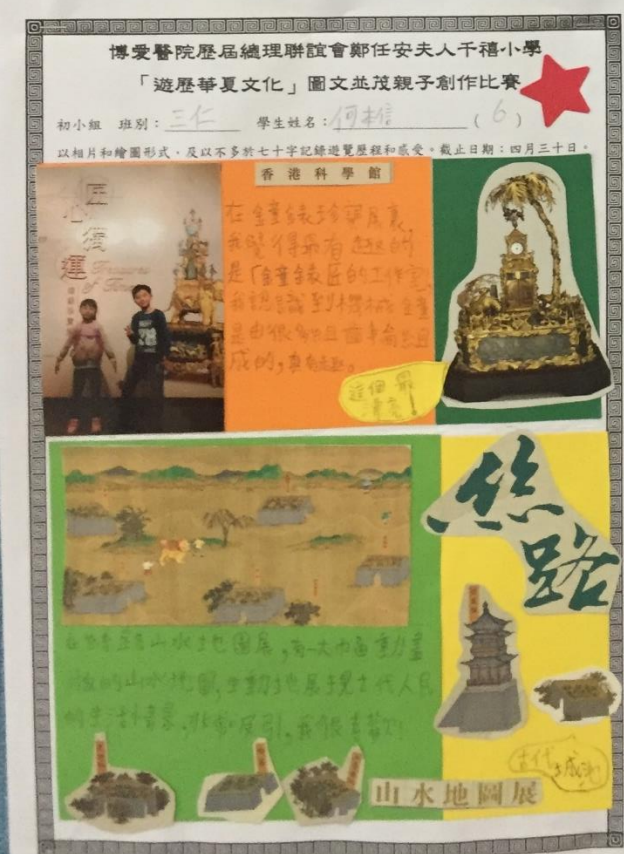 博愛醫院歷屆總理聯誼會鄭任安夫人千禧小學
「遊歷華夏文化」圖文並茂親子創作比賽
初小組 班別：三仁 學生姓名：何 信 (6)
以相片和繪圖形式，及以不多於七十字記錄遊覽歷程和感受。截止日期：四月三十日。
匠心獨運
Treasures of Time
香港科學館
在鐘錶珍藏展裏，
我覺得最有趣的
是「鐘錶匠的工作室」
我認識到機械鐘
是由很多 齒輪組
成的，真有趣。
這個最
漂亮！
絲路
山水地圖展，有一大市 動畫
版的山水地圖，生動地展示了古代人民
的生活情景，非常吸引，我很喜歡！
古代城池
山水地圖展